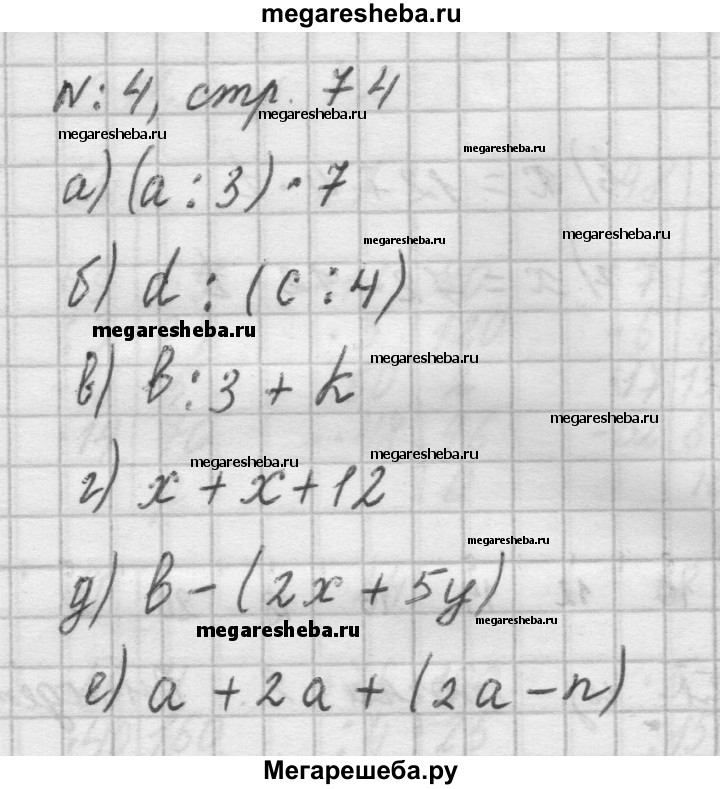 megaresheba.ru
N: 4, стр. 74
megaresheba.ru megaresheba.ru
megaresheba.ru
а) (a : 3) · 7
megaresheba.ru megaresheba.ru
б) d : (c : 4)
megaresheba.ru
megaresheba.ru
в) b : 3 + k
megaresheba.ru
megaresheba.ru megaresheba.ru
г) x + x + 12
megaresheba.ru
д) b - (2x + 5y)
megaresheba.ru megaresheba.ru
е) a + 2a + (2a - n)
Мегарешеба.ру